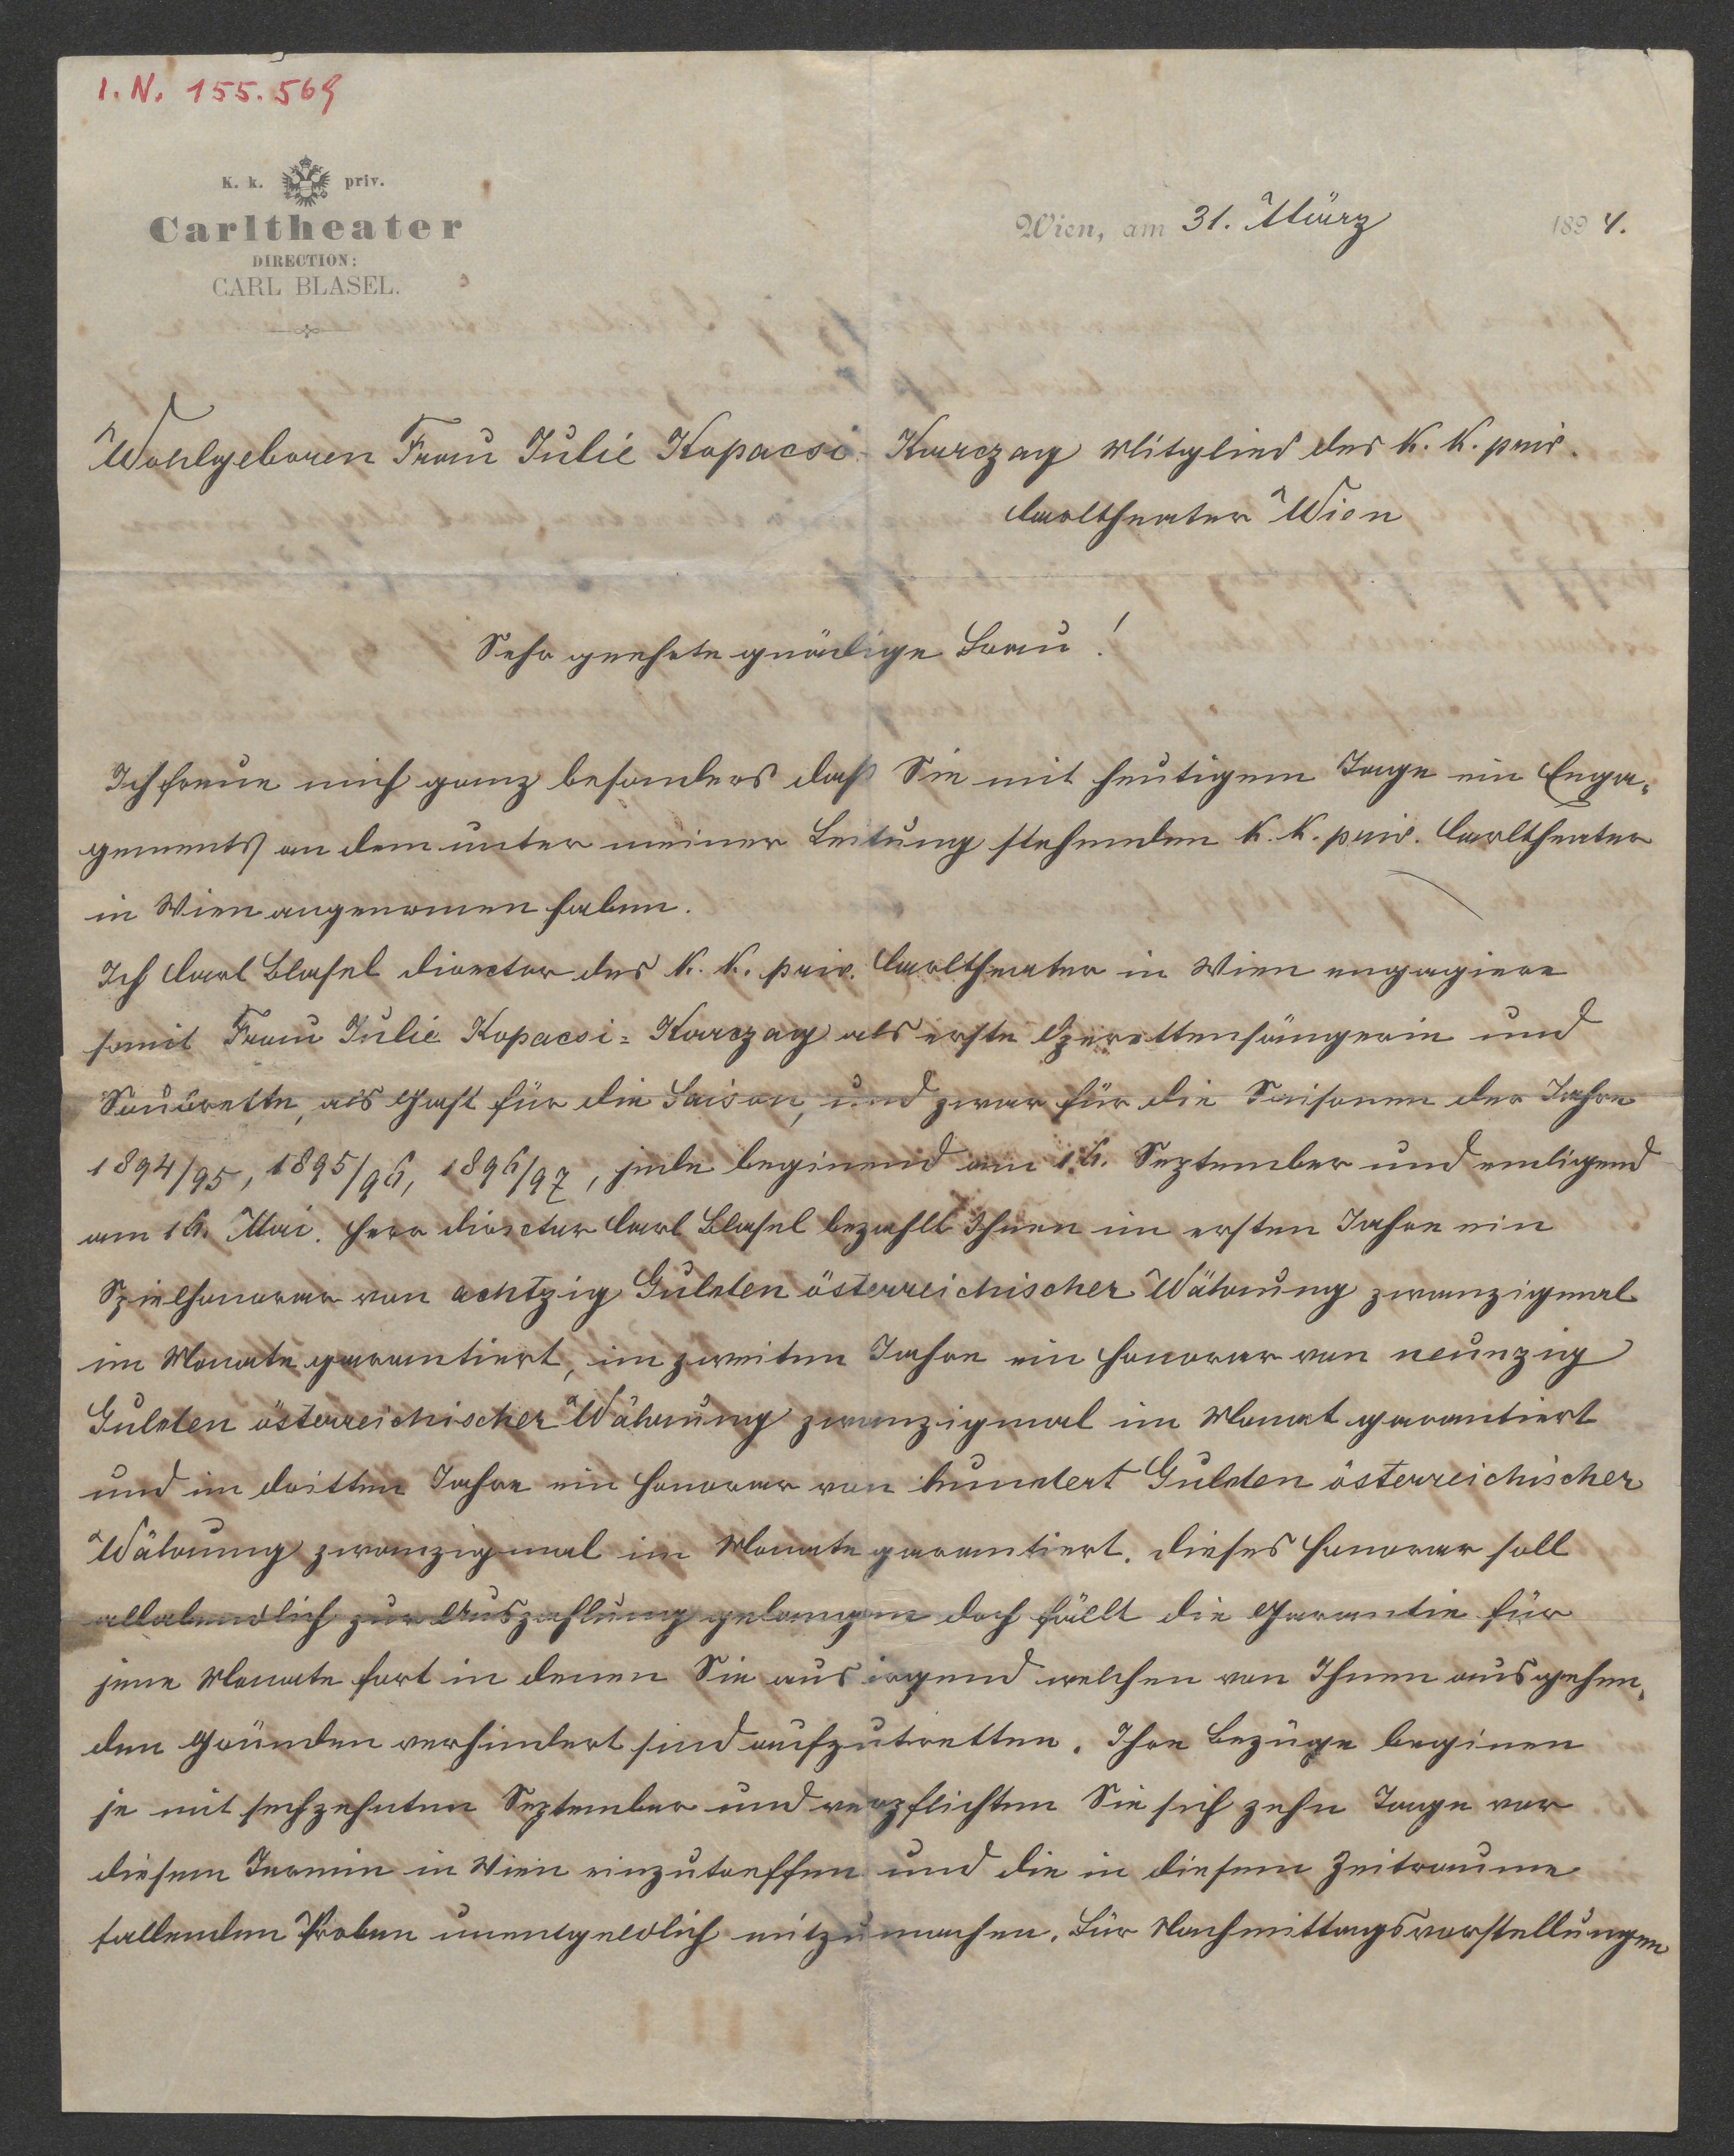 I. N. 155.569
K. k. priv.
Carltheater
DIRECTION:
CARL BLASEL.
Wien, am 31. März 1894.
Wohlgeboren Frau Julie Kopacsi-Karczag Mitglied des K. K. priv.
Carltheater Wien
Sehr geehrte gnädige Frau!
Ich freue mich ganz besonders daß Sie mit heutigem Tage ein Enga-
gements an dem unter meiner Leitung stehenden K. K. priv. Carltheater
in Wien angenomen haben.
Ich Carl Blasel Director des K. K. priv. Carltheater in Wien engagiere
somit Frau Julie Kopacsi-Karczag als erste Operettensängerin und
Soubrette, als Gast für die Saison, und zwar für die Saisonen der Jahre
1894/95, 1895/96, 1896/97, jede beginend am 16. September und endigend
am 16. Mai. Herr Director Carl Blasel bezahlt Ihnen im ersten Jahre ein
Spielhonorar von achtzig Gulden österreichischer Währung zwanzigmal
im Monate garantiert, im zweiten Jahre ein Honorar von neunzig
Gulden österreichischer Währung zwanzigmal im Monat garantiert
und im dritten Jahre ein Honorar von hundert Gulden österreichischer
Währung zwanzigmal im Monate garantiert. Dieses Honorar soll
allabendlich zur Auszahlung gelangen doch fällt die Garantie für
jene Monate fort in denen Sie aus irgend welchen von Ihnen ausgehen-
den Gründen verhindert sind aufzutretten. Ihre Bezüge beginen
je mit sechzehnten September und verpflichten Sie sich zehn Tage vor
diesem Termin in Wien einzutreffen und die in diesem Zeitraume
fallenden Proben unentgeldlich mitzumachen. Für Nachmittagsvorstellungen